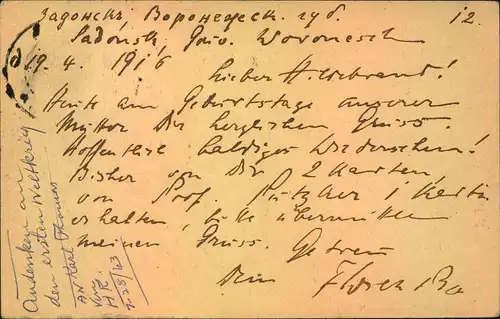 Задонскъ Воронежск. губ. 12.
Sadonsk, Gouv. Woronesch
19. 4. 1916
Lieber Hildebrand!
Heute am Geburtstage unserer
Mutter Dir herzlichen Gruss.
Hoffentlich baldiges Wiedersehen!
Bisher von Dir 2 Karten,
von Prof. 1 Karte
erhalten, bitte übermitteln
meinen Gruss. Getreu
Dein
Andenken an
den ersten Weltkrieg
an Karl Thomas
von
H R.
7-25/43